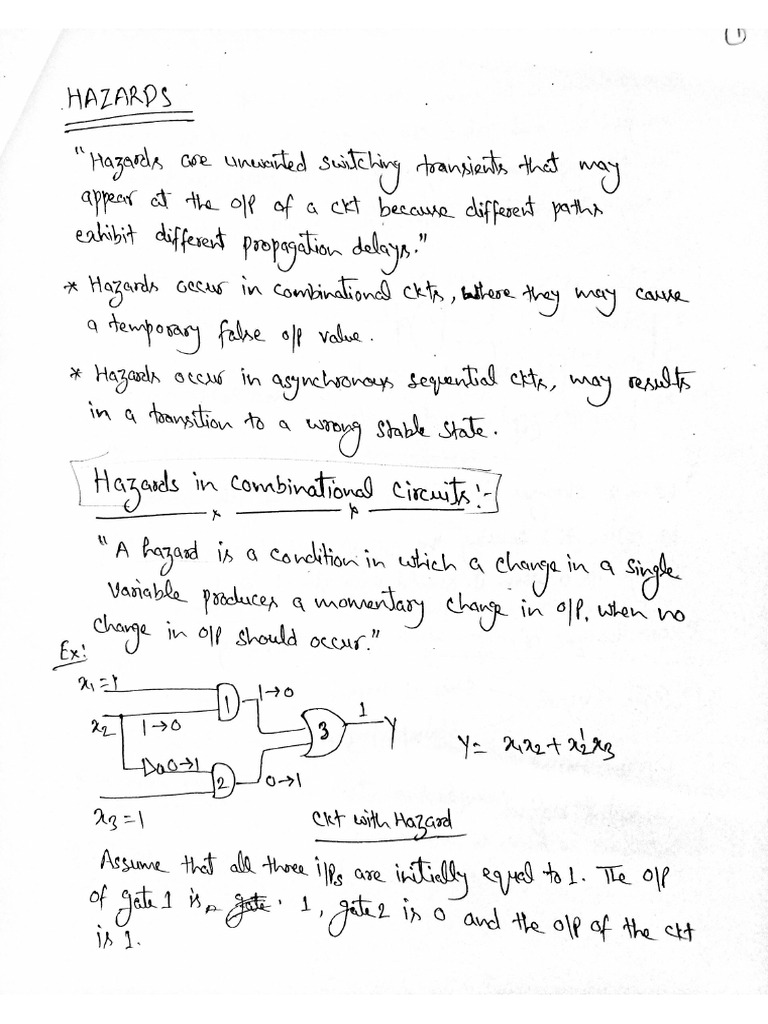 (1)
HAZARDS
"Hazards are unwanted switching transients that may
appear at the o/p of a ckt because different paths
exhibit different propagation delays."
* Hazards occur in combinational ckts, where they may cause
a temporary false o/p value.
* Hazards occur in asynchronous sequential ckts, may results
in a transition to a wrong stable state.
Hazards in combinational circuits:-
"A hazard is a condition in which a change in a single
variable produces a momentary change in o/p, when no
change in o/p should occur."
Ex:
x₁=1
1
1→0
x₂
1→0
3
1
Y
Y = x₁x₂ + x₂'x₃
0→1
2
0→1
x₃=1
Ckt with Hazard
Assume that all three i/ps are initially equal to 1. The o/p
of gate 1 is gate 1, gate 2 is 0 and the o/p of the ckt
is 1.